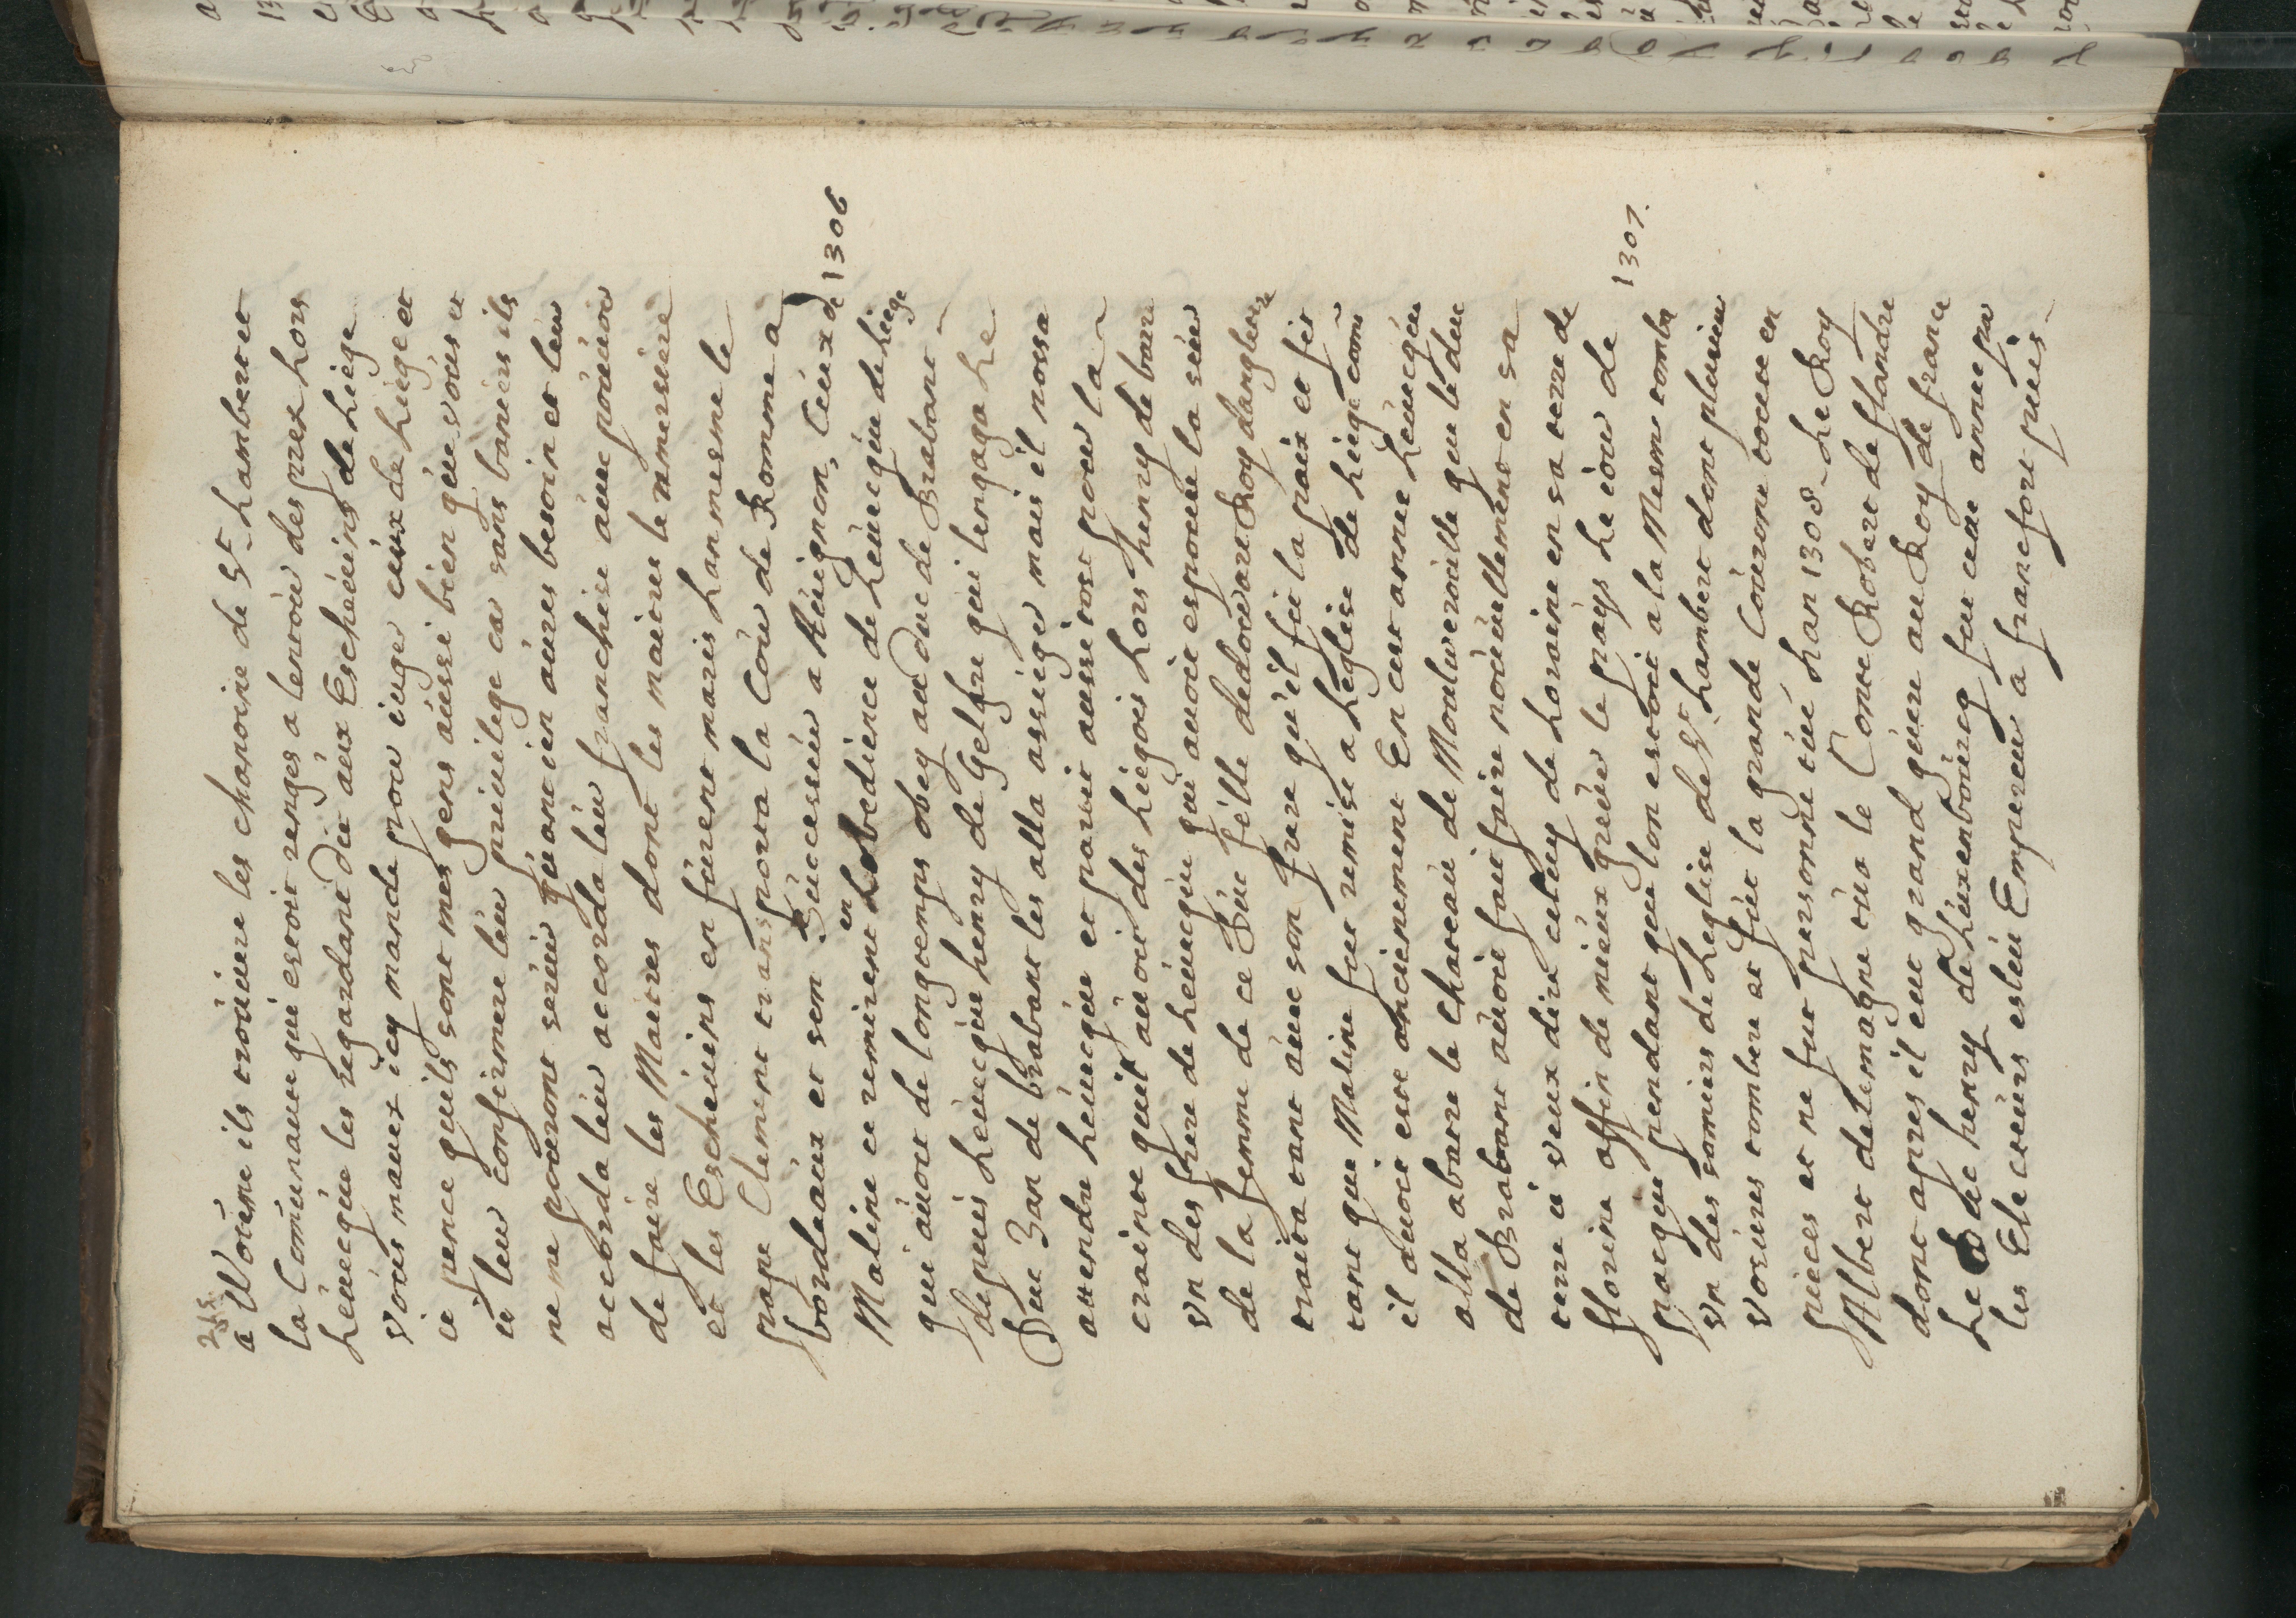 215.
a Woteme ils trouvere les chanoine de St. Lambert et
la Comunaute qui estoit renges a lentour des prex Lors
Leuecque les regardant dit aux Escheuins de Liege
vous mauex icy mande pour iuger ceux de Liege et
ie pence quils sont mes gens aussi bien que vous et
ie leur confirmere leur priuilege car sans baniers ils
ne me pouront seruir quant ien aures besoin et leur
accorda leur accorda leur franchise auec pouuoir
de faire les Maitres dont les maitres le remersiere
et les Escheuins en furent maris Lan mesme le
pape Clement transporta la Cour de Romme a
bordeaux et son Successeur a Auignon, Ceux de 1306
Maline ce remirent en Lobedience de Leuecque de Liege
que auoit de longtemps obey au Duc de Brabant
depuis Leuecque henry de Gelfre qui lengaga Le
Duc Jan de brabant les alla assieger mais il nossa
attendre Leuecque et partit aussi tost pour la
crainte quil auoit des Liegois Lors henry de barre
vn des frere de Leuecque qui auoit espouse la seur
de la femme de ce Duc fille dedouart Roy dangleterre
traita tant auec son frere qu'il fit la paix et fit
tant que Maline fut remise a Leglise de Liege come
il auoit este anciennement En cest annee Leuecque
alla abatre le Chateau de Montweroulle que le duc
de Brabant auoit fait faire nouuellement en sa
terre ie veux dire celuy de Loraine en sa terre de
florine affin de mieux greuer le pays Le iour de 1307.
pacque pendant que lon estoit a la Mesme tomba
vn des somiers de Leglise de St. Lambert dont plusieur
vosures tombere et fut la grande Couronne toute en
pieces et ne fut personne tué Lan 1308 Le Roy
Albert delemagne tua le Conte Robert de flandre
dont apres il eut grand guere au Roy de france
Le Duc henry de Luxenbourcq fut cette annee par
les Electeurs esleu Empereur a francfort puis